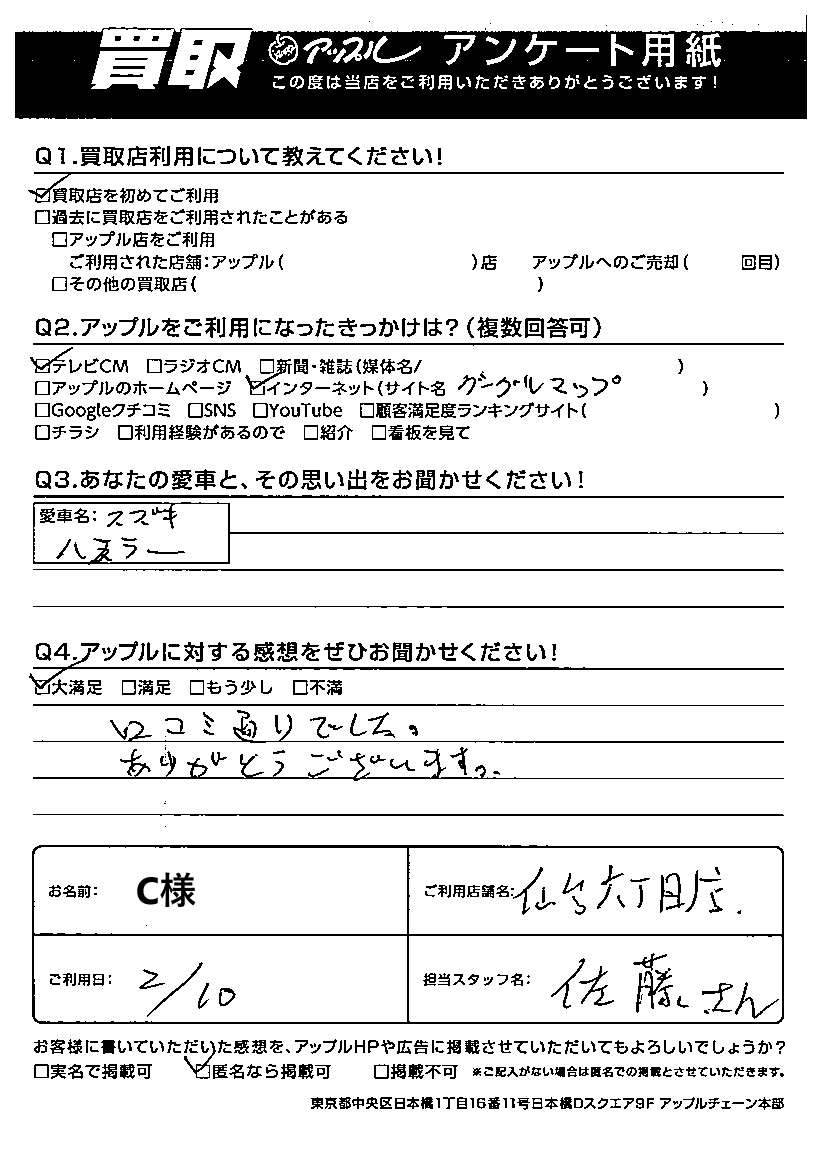 買取 アップル アンケート用紙
この度は当店をご利用いただきありがとうございます!
Q1.買取店利用について教えてください!
☑買取店を初めてご利用
□過去に買取店をご利用されたことがある
□アップル店をご利用
ご利用された店舗:アップル( )店 アップルへのご売却( 回目)
□その他の買取店( )
Q2.アップルをご利用になったきっかけは?(複数回答可)
☑テレビCM □ラジオCM □新聞・雑誌(媒体名/ )
□アップルのホームページ ☑インターネット(サイト名 グーグルマップ )
□Googleクチコミ □SNS □YouTube □顧客満足度ランキングサイト( )
□チラシ □利用経験があるので □紹介 □看板を見て
Q3.あなたの愛車と、その思い出をお聞かせください!
愛車名:スズキ
ハスラー
Q4.アップルに対する感想をぜひお聞かせください!
☑大満足 □満足 □もう少し □不満
口コミ通りでした。
ありがとうございます。
お名前: C様 ご利用店舗名:仙台六丁目店.
ご利用日: 2/10 担当スタッフ名: 佐藤さん
お客様に書いていただいた感想を、アップルHPや広告に掲載させていただいてもよろしいでしょうか?
□実名で掲載可 ☑匿名なら掲載可 □掲載不可 ※ご記入がない場合は匿名での掲載とさせていただきます。
東京都中央区日本橋1丁目16番11号日本橋Dスクエア9F アップルチェーン本部